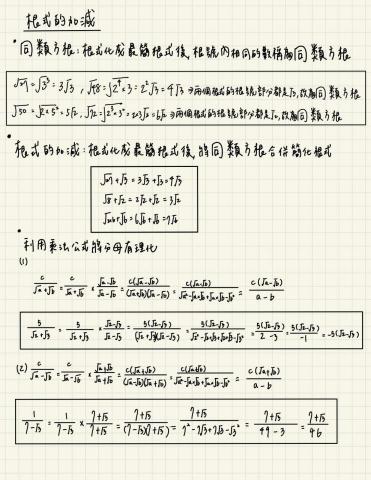 根式的加減
• 同類方根：根式化成最簡根式後，根號內相同的數稱為同類方根
√27 = √3³ = 3√3 , √48 = √2⁴×3 = 2²√3 = 4√3 ⇒ 兩個根式的根號部分都是√3，故為同類方根
√50 = √2×5² = 5√2 , √72 = √2³×3² = 2×3√2 = 6√2 ⇒ 兩個根式的根號部分都是√2，故為同類方根
• 根式的加減：根式化成最簡根式後，將同類方根合併簡化根式
√27 + √3 = 3√3 + √3 = 4√3
√8 + √2 = 2√2 + √2 = 3√2
• 利用乘法公式將分母有理化
(1) c/(√a+√b) = c/(√a+√b) × (√a-√b)/(√a-√b) = c(√a-√b)/((√a+√b)(√a-√b)) = c(√a-√b)/(√a²-√a√b+√a√b-√b²) = c(√a-√b)/(a-b)
5/(√2+√3) = 5/(√2+√3) × (√2-√3)/(√2-√3) = 5(√2-√3)/((√2+√3)(√2-√3)) = 5(√2-√3)/(√2²-√2√3+√2√3-√3²) = 5(√2-√3)/(2-3) = 5(√2-√3)/(-1) = -5(√2-√3)
(2) c/(√a-√b) = c/(√a-√b) × (√a+√b)/(√a+√b) = c(√a+√b)/((√a-√b)(√a+√b)) = c(√a+√b)/(√a²-√a√b+√a√b-√b²) = c(√a+√b)/(a-b)